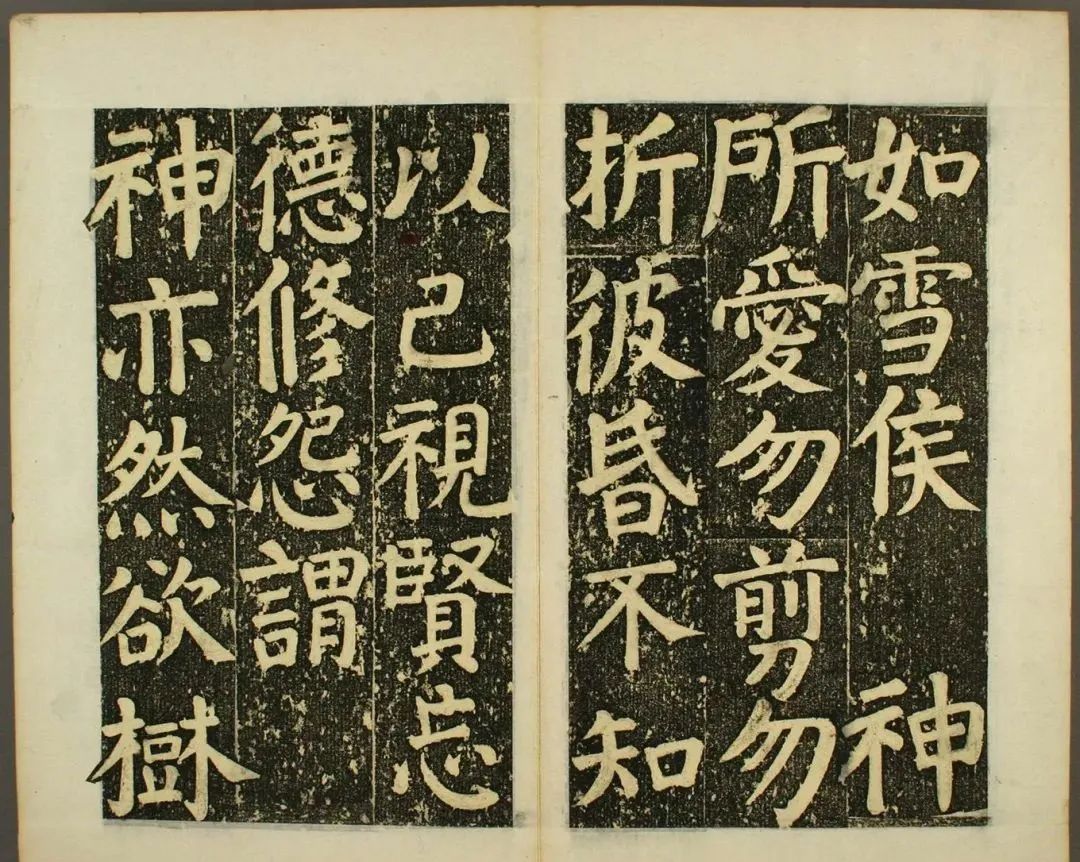 如雪侯神
所愛勿剪勿
折彼昏不知
以己視賢忘
德修怨謂
神亦然欲樹